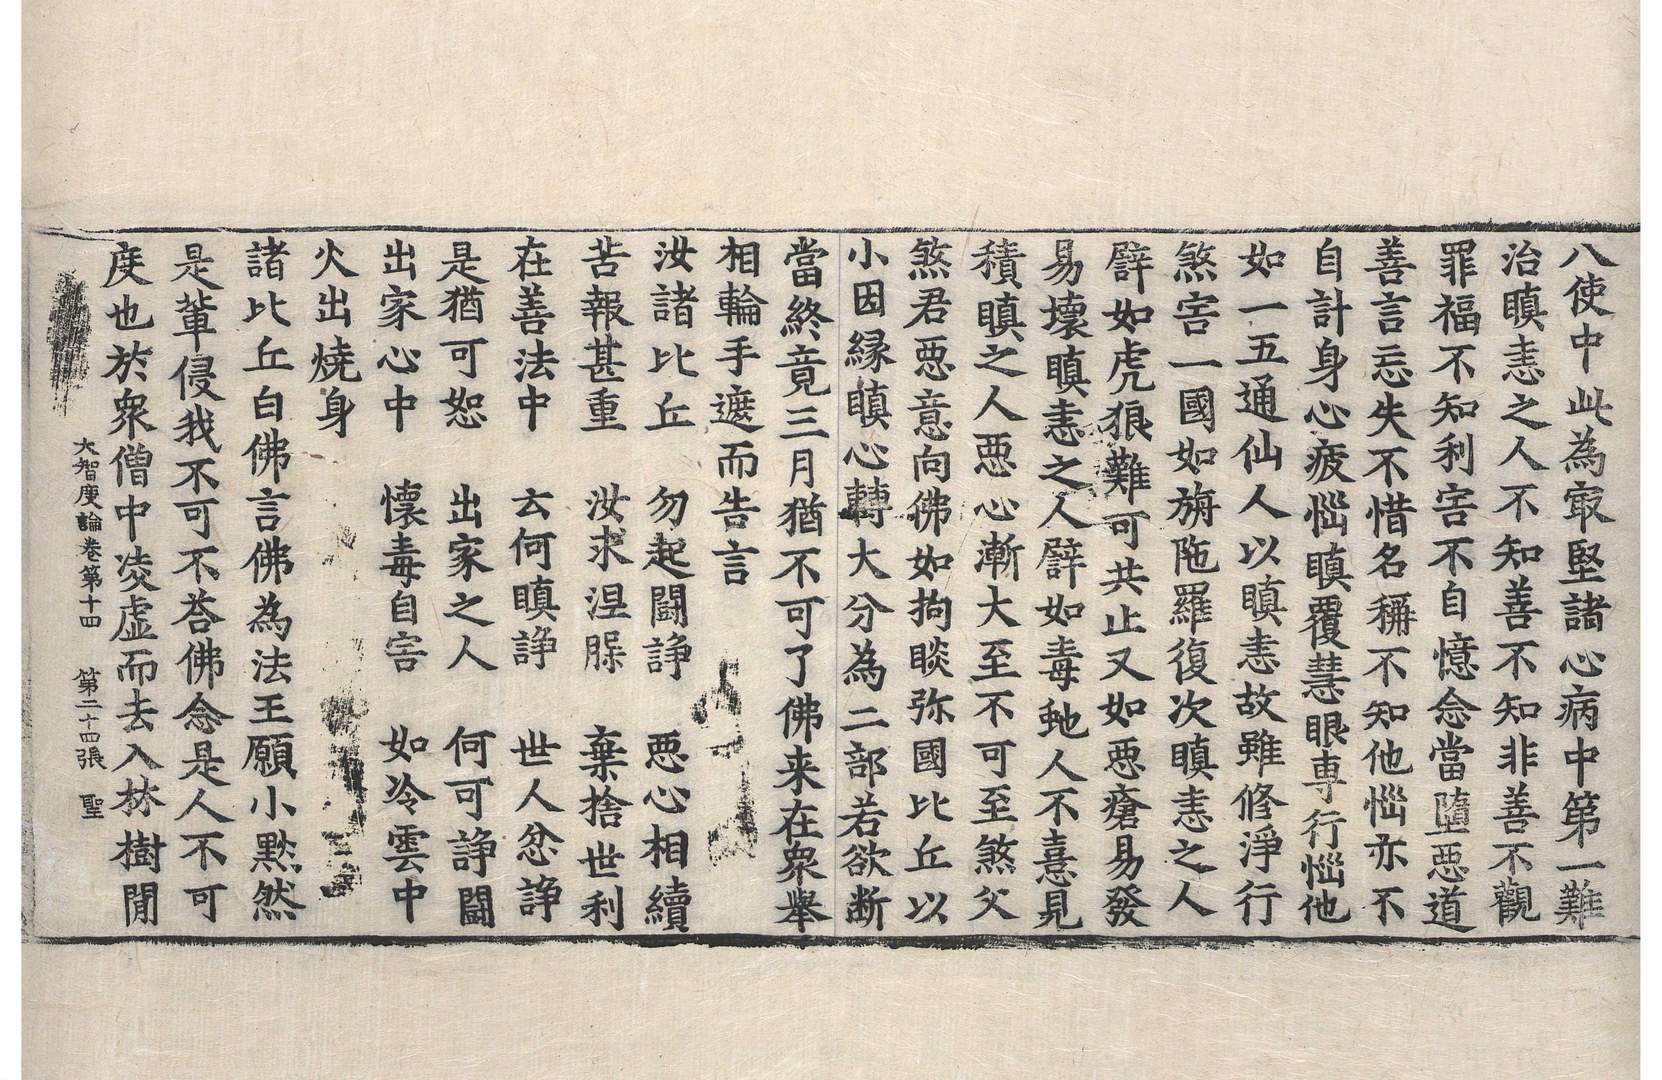 八使中此為㝡堅諸心病中第一難
治瞋恚之人不知善不知非善不觀
罪福不知利害不自憶念當墮惡道
善言忘失不惜名稱不知他惱亦不
自計身心疲惱瞋覆慧眼専行惱他
如一五通仙人以瞋恚故雖修淨行
煞害一國如旃陁羅復次瞋恚之人
譬如虎狼難可共止又如惡瘡易發
易壞瞋恚之人譬如毒虵人不憙見
積瞋之人惡心漸大至不可至煞父
煞君惡意向佛如拘睒弥國比丘以
小因縁瞋心轉大分為二部若欲断
當終竟三月猶不可了佛来在衆舉
相輪手遮而告言
汝諸比丘　勿起闘諍　惡心相續
苦報甚重　汝求涅槃　棄捨世利
在善法中　云何瞋諍　世人忿諍
是猶可恕　出家之人　何可諍闘
出家心中　懷毒自害　如冷雲中
火出燒身
諸比丘白佛言佛為法王願小黙然
是輩侵我不可不荅佛念是人不可
度也於衆僧中凌虛而去入林樹間
大智度論卷第十四　第二十四張　聖